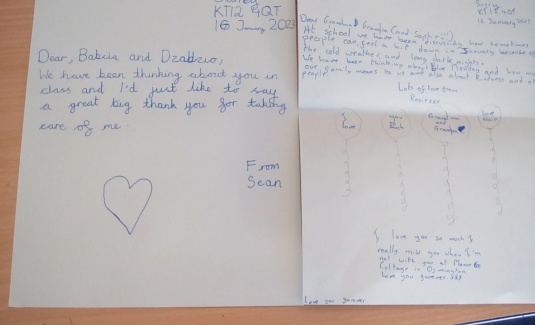 KT12 4QT
16 January 2023
Dear, Babcia and Dzadzio,
We have been thinking about you in
class and I'd just like to say
a great big thank you for taking
care of me
From
Sean
Surrey
KT12 4QT
16 January 2023
Dear Grandma & Grandpa (and Sophie!!)
At school we have been discussing how sometimes
people can feel a bit down in January because of
the cold weather and long dark nights.
We have been thinking about Blue Monday and how much
our family means to us and also about kindness and
Lots of love from
I
love
you
so much
Grandma
and
Grandpa
I love you so much &
really miss you when I'm
not with you at
Cottage in Osmington
love you forever xxx
Love you forever